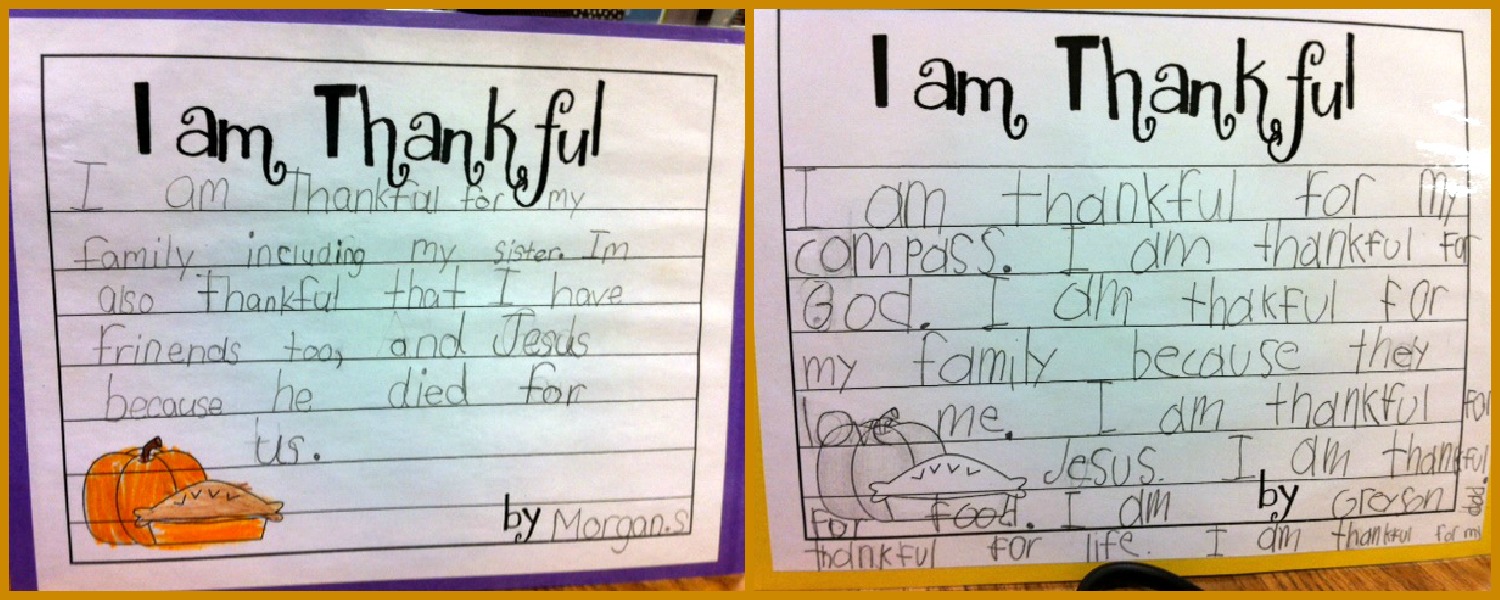 I am Thankful
I am Thankful for my
family including my sister. Im
also thankful that I have
frinends too, and Jesus
because he died for
us.
by Morgan.S
I am Thankful
I am thankful for my
compass. I am thankful for
God. I am thakful for
my family because they
love me. I am thankful for
Jesus. I am thankful
for food. I am by Grayson
thankful for life. I am thankful for my
dad.